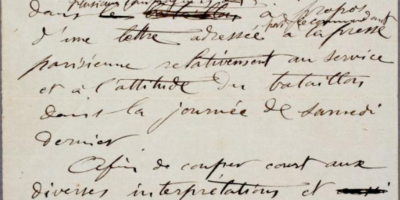 dans le à propos
d'une lettre adressée à la presse
parisienne relativement au service
et à l'attitude du bataillon
dans la journée de samedi
dernier.
Afin de couper court aux
diverses interprétations et